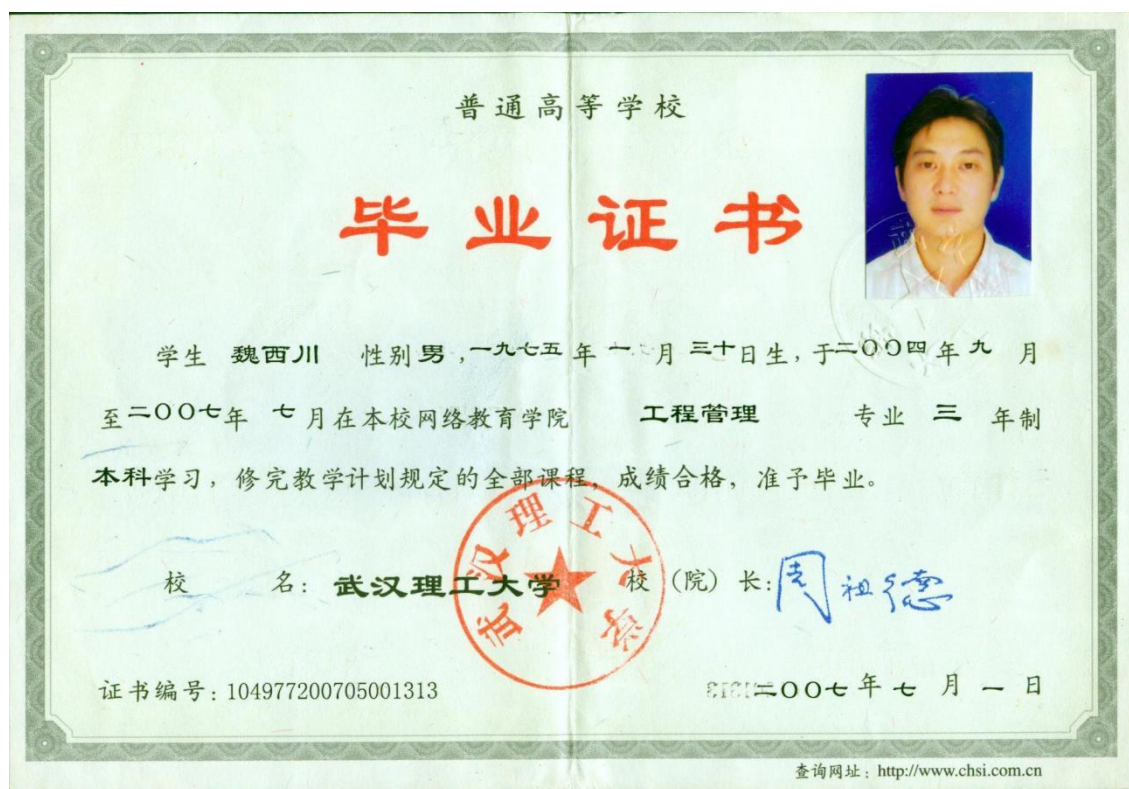 普通高等学校
毕业证书
学生 魏西川 性别男,一九七五年 一 月 三十日生,于二〇〇四年 九 月
至二〇〇七年 七 月在本校网络教育学院 工程管理 专业 三 年制
本科学习，修完教学计划规定的全部课程，成绩合格，准予毕业。
校 名：武汉理工大学 校（院）长：周祖德
武汉理工大学
证书编号：104977200705001313 二〇〇七年 七 月 一 日
查询网址：http://www.chsi.com.cn